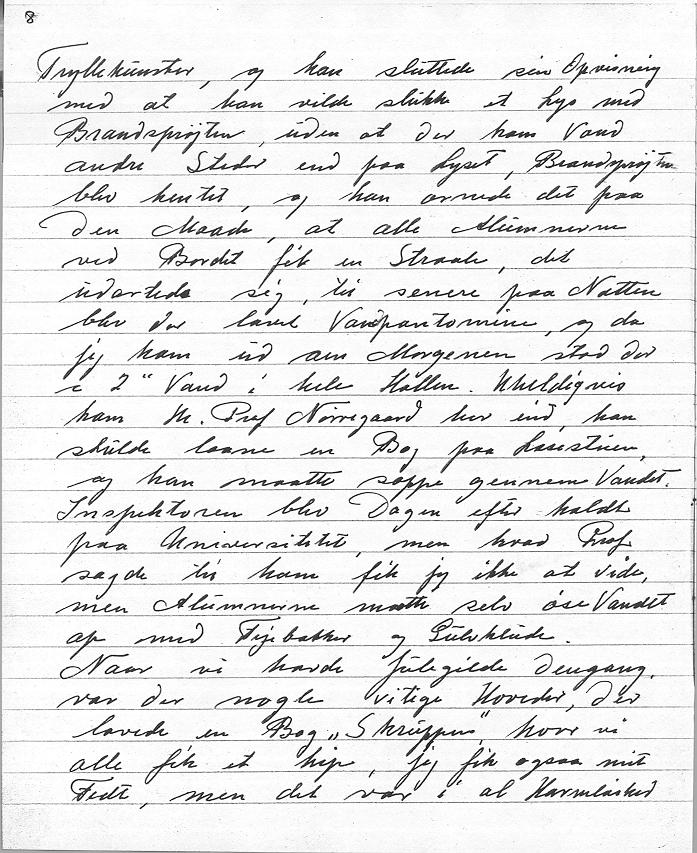 8
Tryllekunster, og han sluttede sin Opvisning
med at han vilde slukke et Lys med
Brandsprøjten, uden at der kom Vand
andre Steder end paa Lyset, Brandsprøjten
blev hentet, og han ornede det paa
den Maade, at alle Alumnerne
ved Bordet fik en Straale, det
udartede sig, til senere paa Natten
blev der lavet Vandpantomine, og da
jeg kom ud om Morgenen stod der
c 2" Vand i hele Hallen. Uheldigvis
kom Hr. Prof Nörregaard her ind, han
skulde laane en Bog paa Læsestuen,
og han maatte soppe gennem Vandet.
Inspektoren blev Dagen efter kaldt
paa Universitetet, men hvad Prof
sagde til ham fik jeg ikke at vide,
men Alumnerne maatte selv øse Vandet
op med Fejebakker og Gulvklude.
Naar vi havde Julegilde dengang,
var der nogle vitige Hoveder, der
lavede en Bog „Skruppen", hvor vi
alle fik et hip, jeg fik ogsaa mit
Fedt, men det var i al Harmløshed